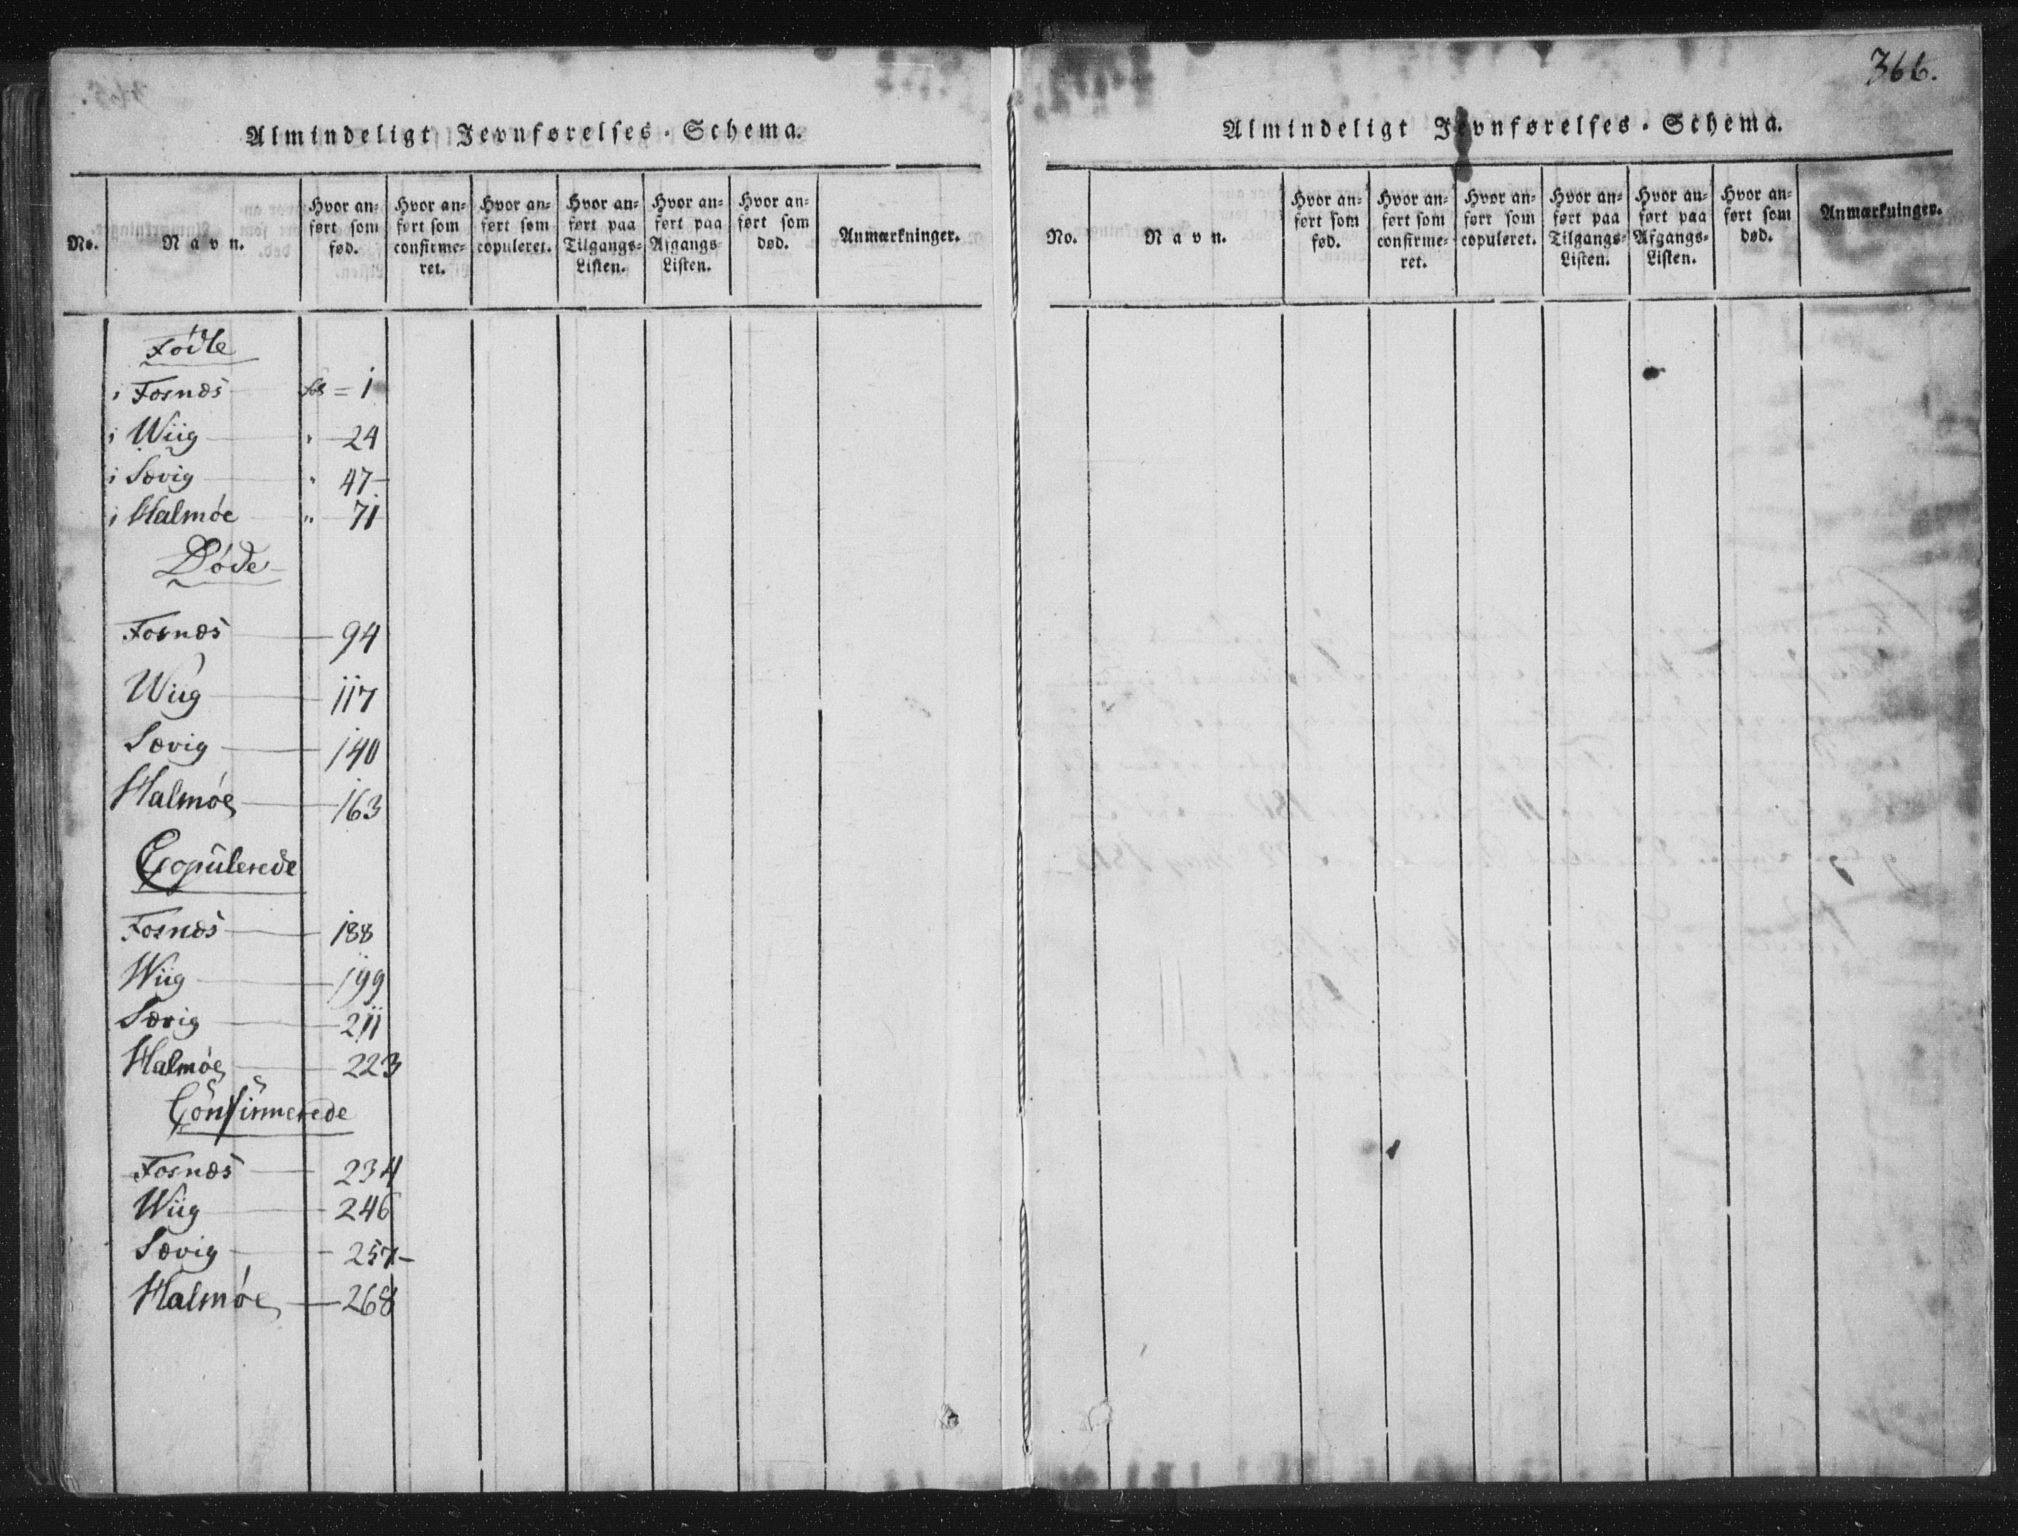 Almindeligt Jevnførelses-Schema.
No.
Navn.
Hvor anført som fød.
Hvor anført som confirmeret.
Hvor anført som copuleret.
Hvor anført paa Tilgangs-Listen.
Hvor anført paa Afgangs-Listen.
Hvor anført som død.
Anmærkninger.
Fødte
i Fosnæs fol = 1
i Wiig " 24
i Sævig " 47
i Halmøe " 71
Døde
Fosnæs 94
Wiig 117
Sævig 140
Halmøe 163
Copulerede
Fosnæs 188
Wiig 199
Sævig 211
Halmøe 223
Confirmerede
Fosnæs 234
Wiig 246
Sævig 257
Halmøe 268
366.
Almindeligt Jevnførelses-Schema.
No.
Navn.
Hvor anført som fød.
Hvor anført som confirmeret.
Hvor anført som copuleret.
Hvor anført paa Tilgangs-Listen.
Hvor anført paa Afgangs-Listen.
Hvor anført som død.
Anmærkninger.